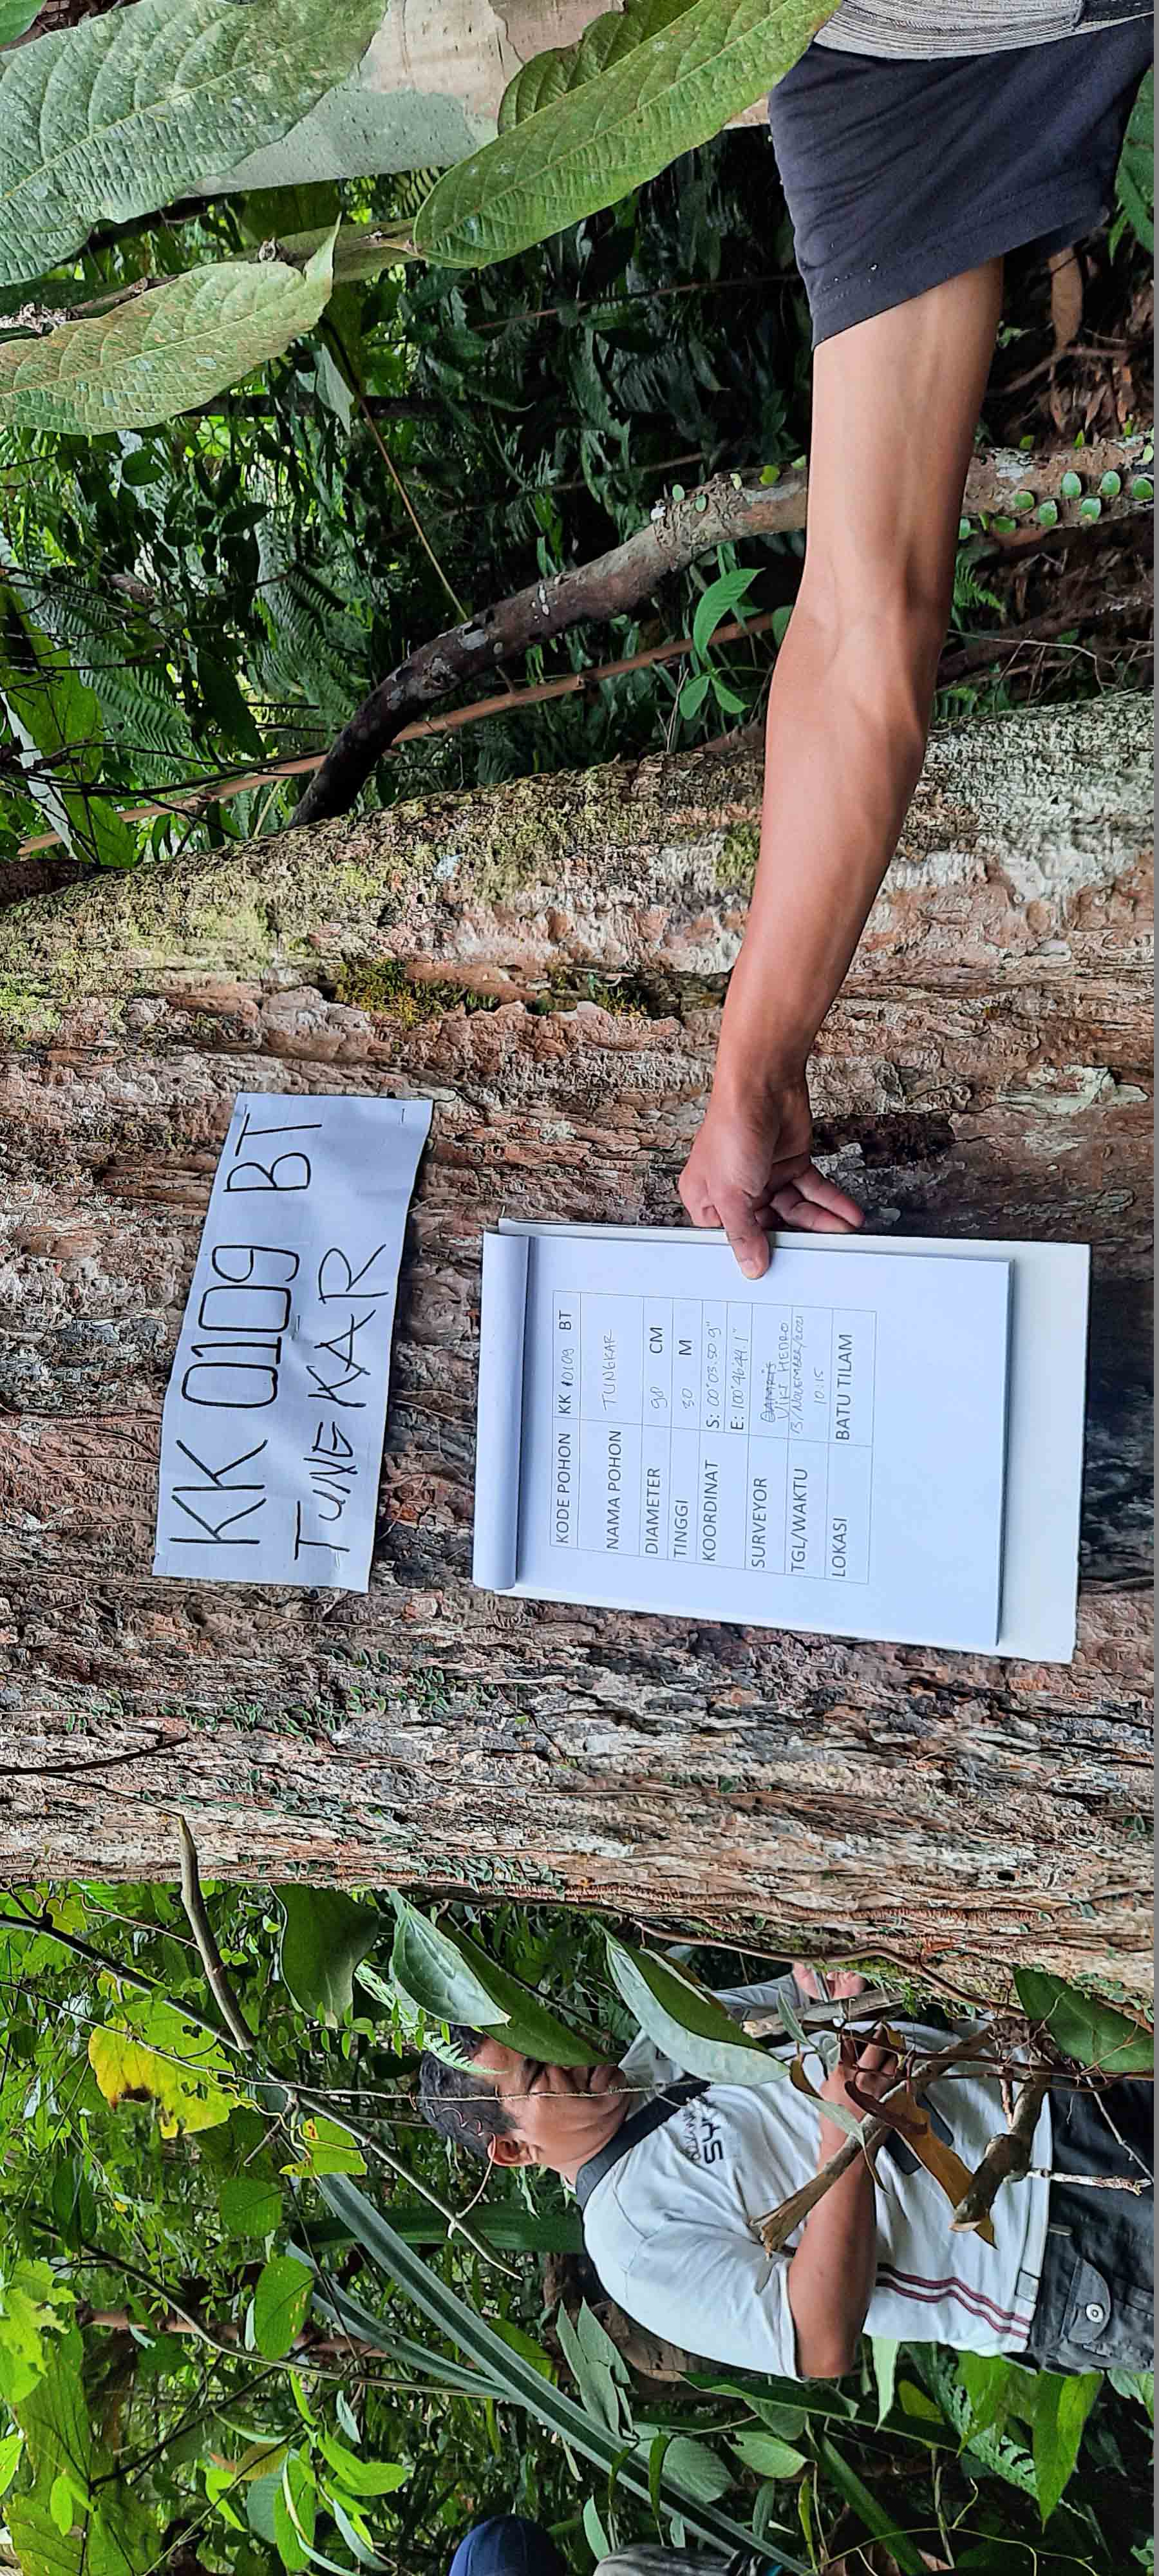 KK 0109 BT
TUNGKAR
KODE POHON KK 0109 BT
NAMA POHON TUNGKAR
DIAMETER 90 CM
TINGGI 30 M
KOORDINAT S: 00°03.50 9"
E: 100°46'44.1"
SURVEYOR VIKI HEDRO
TGL/WAKTU 13/NOVEMBER/2021
10:15
LOKASI BATU TILAM